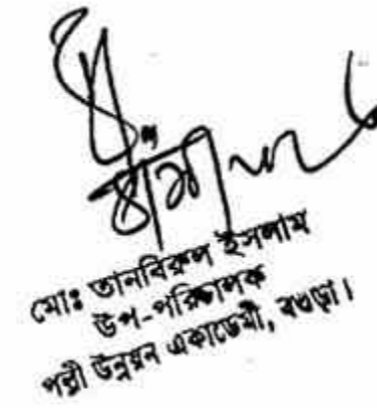 মোঃ তানবিরুল ইসলাম
উপ-পরিচালক
পল্লী উন্নয়ন একাডেমী, বগুড়া।